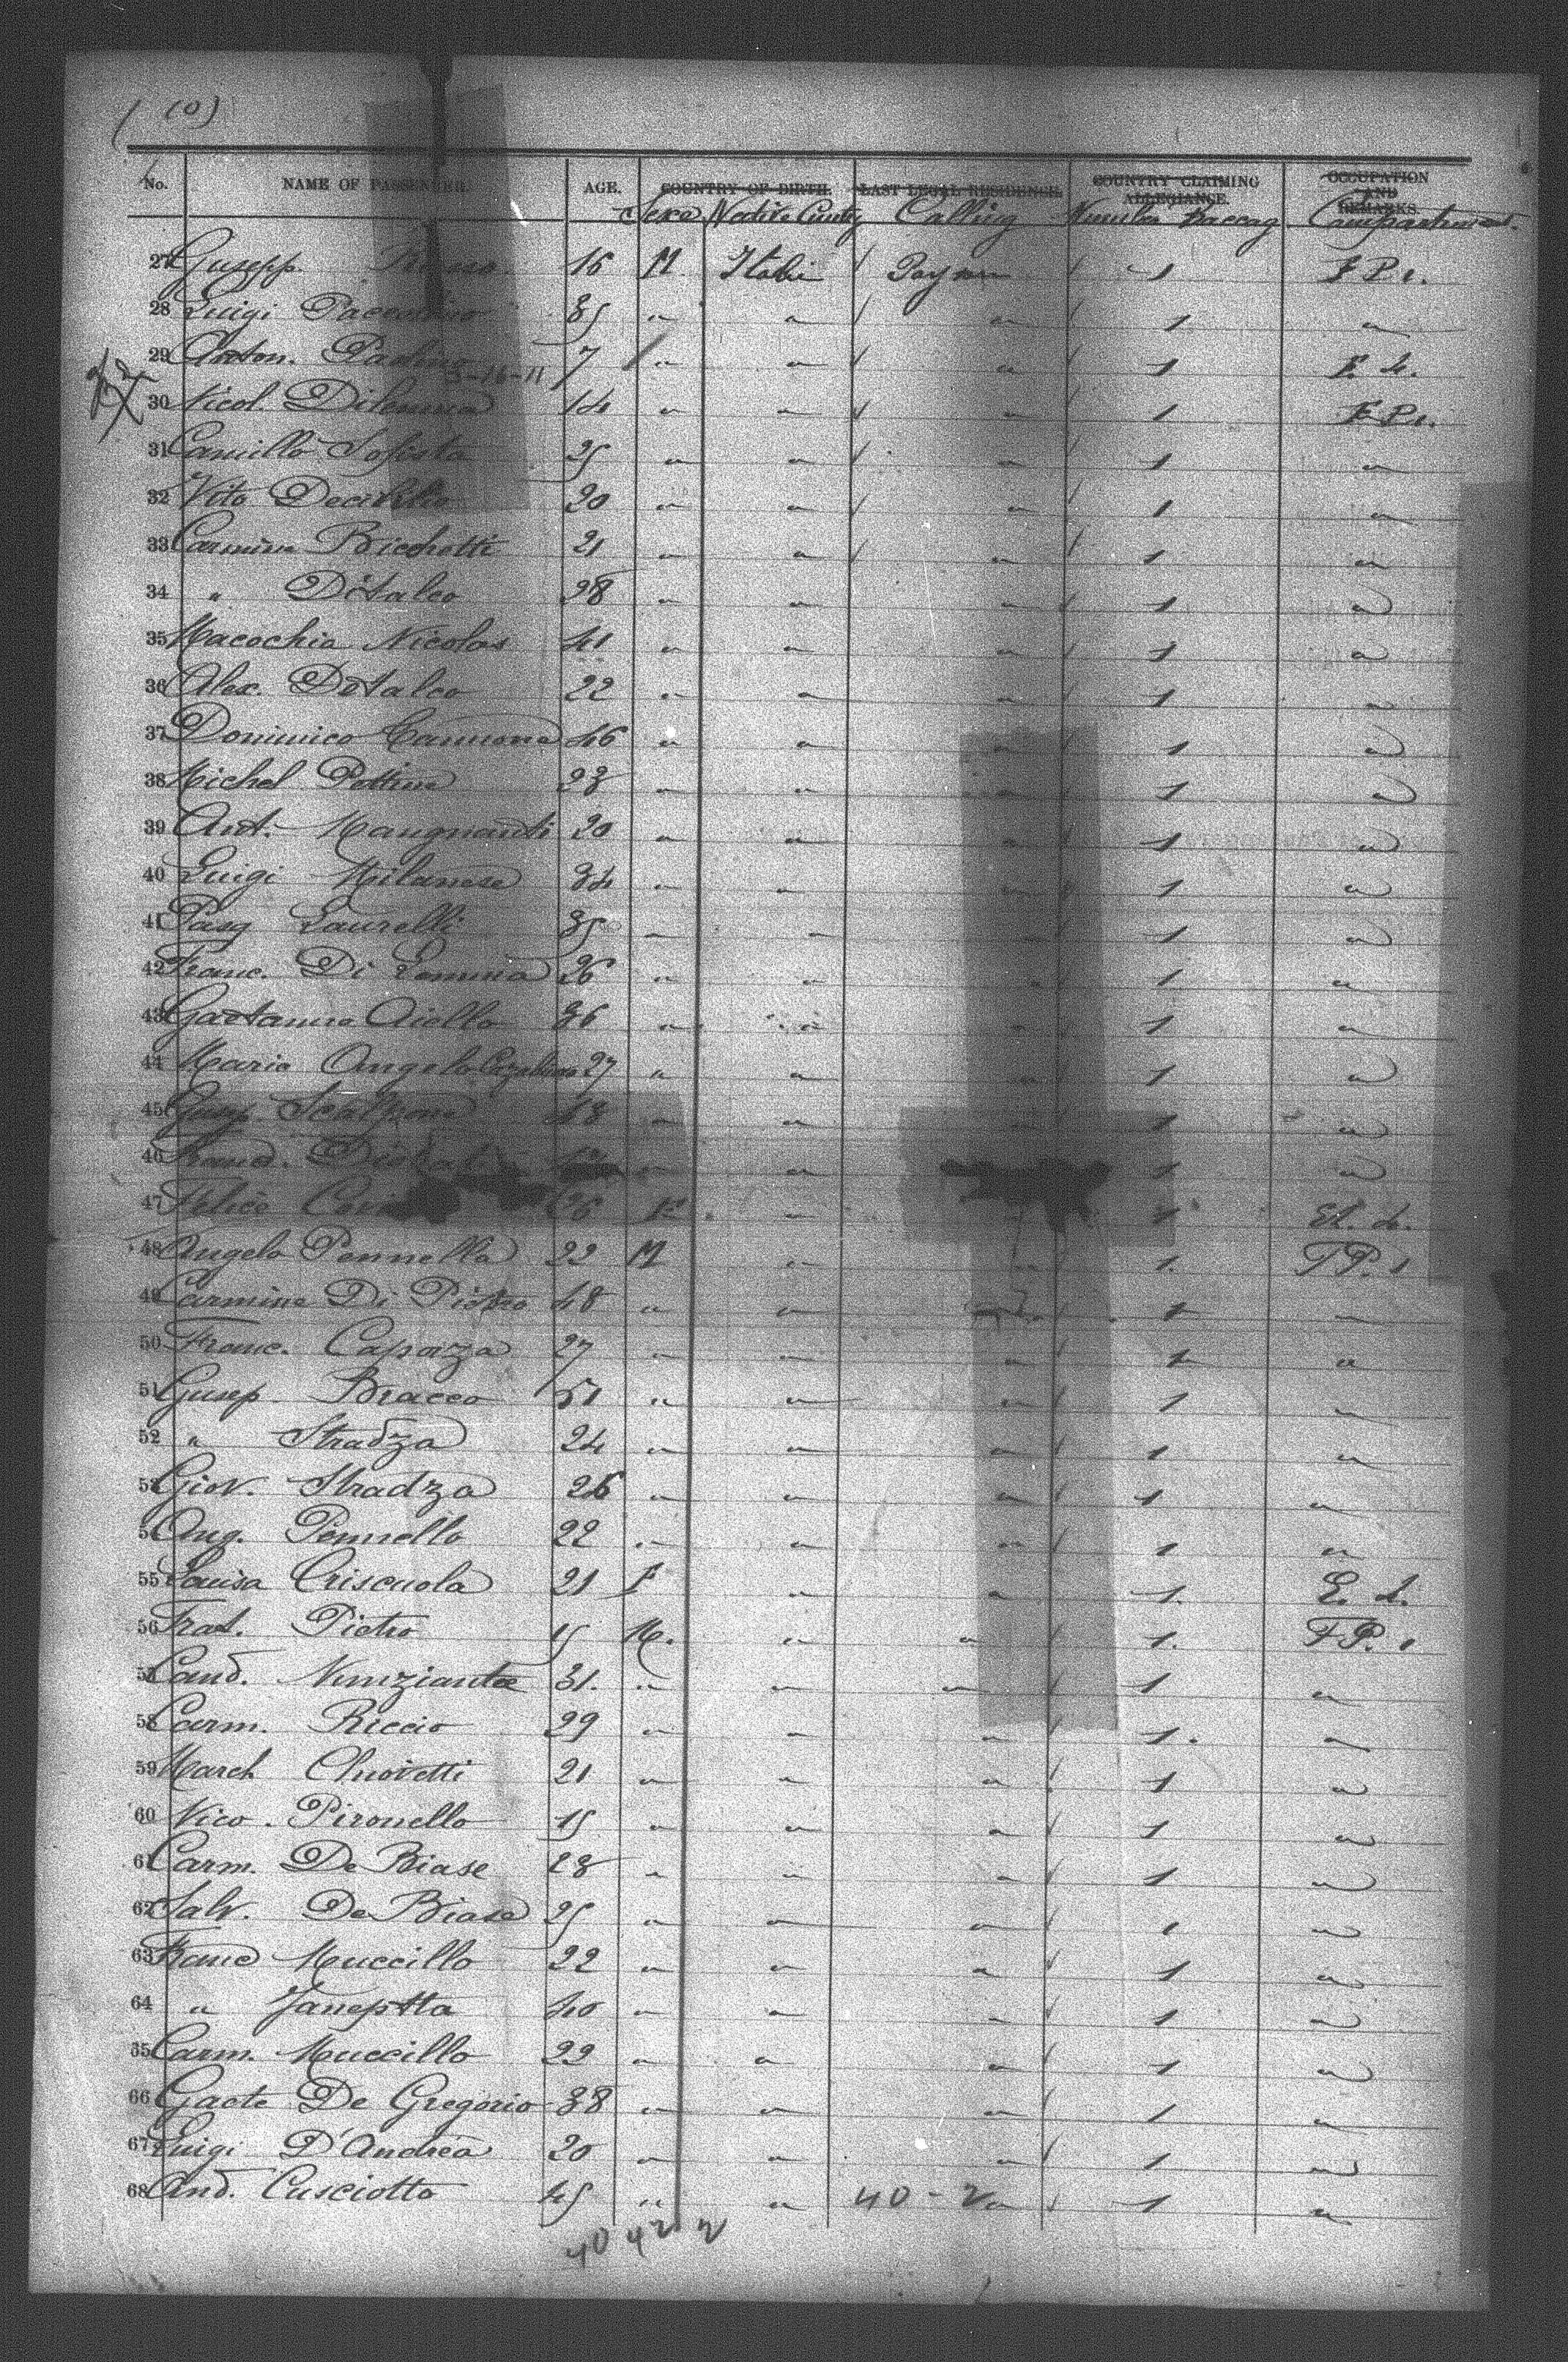 (0)
No. NAME OF PASSENGER. AGE. COUNTRY OF BIRTH. LAST LEGAL RESIDENCE. COUNTRY CLAIMING ALLEGIANCE. OCCUPATION AND REMARKS.
Sexe Native Cuntry Calling Number Baccag Compartiment.
27 Gusepp. Russo 16 M Italie √ √ 1 F P 1.
28 Luigi 35 " " √ " √ 1 "
29 Anton. Paolino 3-16-11 7 " " √ " √ 1 E. d.
30 Nicol. Dilemma 14 " " √ " √ 1 F P 1.
31 Camillo Sofista 25 " " √ " √ 1 "
32 Vito 20 " " √ " √ 1 "
33 Carmine Bicchetti 21 " " √ " √ 1 "
34 " Ditalco 28 " " " √ 1 "
35 Macochia Nicolas 41 " " " √ 1 "
36 Alex. Detalco 22 " " " √ 1 "
37 Dominico Cannona 46 " " " √ 1 "
38 Michel Pottine 23 " " " √ 1 "
39 Ant. Maugnanti 20 " " " √ 1 "
40 Luigi Milanese 34 " " " √ 1 "
41 Pasq Laurelli 35 " " " √ 1 "
42 Franc. Di Lemma 26 " " " √ 1 "
43 Gaetanno Aiello 36 " " " √ 1 "
44 Maria Angelo 27 " " " √ 1 "
45 Gusep. 48 " " " √ 1 "
46 Franc. " " 1 "
47 Felice 26 F " " 1 E. d.
48 Angelo Pennella 22 M " " √ 1. F P. 1
49 Carmine Di Pietro 48 " " " √ 1 "
50 Franc. Capozza 27 " " " √ 1 "
51 Gusep. Bracco 51 " " " √ 1 "
52 " Stradza 24 " " " √ 1 "
53 Giov. Stradza 26 " " " √ 1 "
54 Ang. Pennello 22 " " " √ 1 "
55 Louisa Criscuola 21 F " " √ 1. E. d.
56 Frat. Pietro 15 M. " " √ 1. F P. 1
57 Cand. Nunziantae 31. " " " √ 1 "
58 Carm. Riccio 29 " " " √ 1. "
59 March Chiovetti 21 " " " √ 1 "
60 Nico. Pironello 15 " " " √ 1 "
61 Carm. De Biase 28 " " " √ 1 "
62 Salv. De Biase 25 " " " √ 1 "
63 Franc Muccillo 22 " " " √ 1 "
64 " 40 " " " √ 1 "
65 Carm. Muccillo 29 " " " √ 1 "
66 Gaete De Gregorio 38 " " " √ 1 "
67 Luigi D'Andrea 20 " " " √ 1 "
68 And. Cusciotto 45 " " 40-2 " √ 1 "
40 42 2